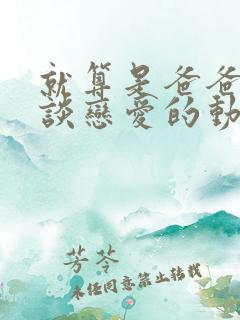 就算是爸爸
談戀愛的動
芳苓
未經同意禁止轉載